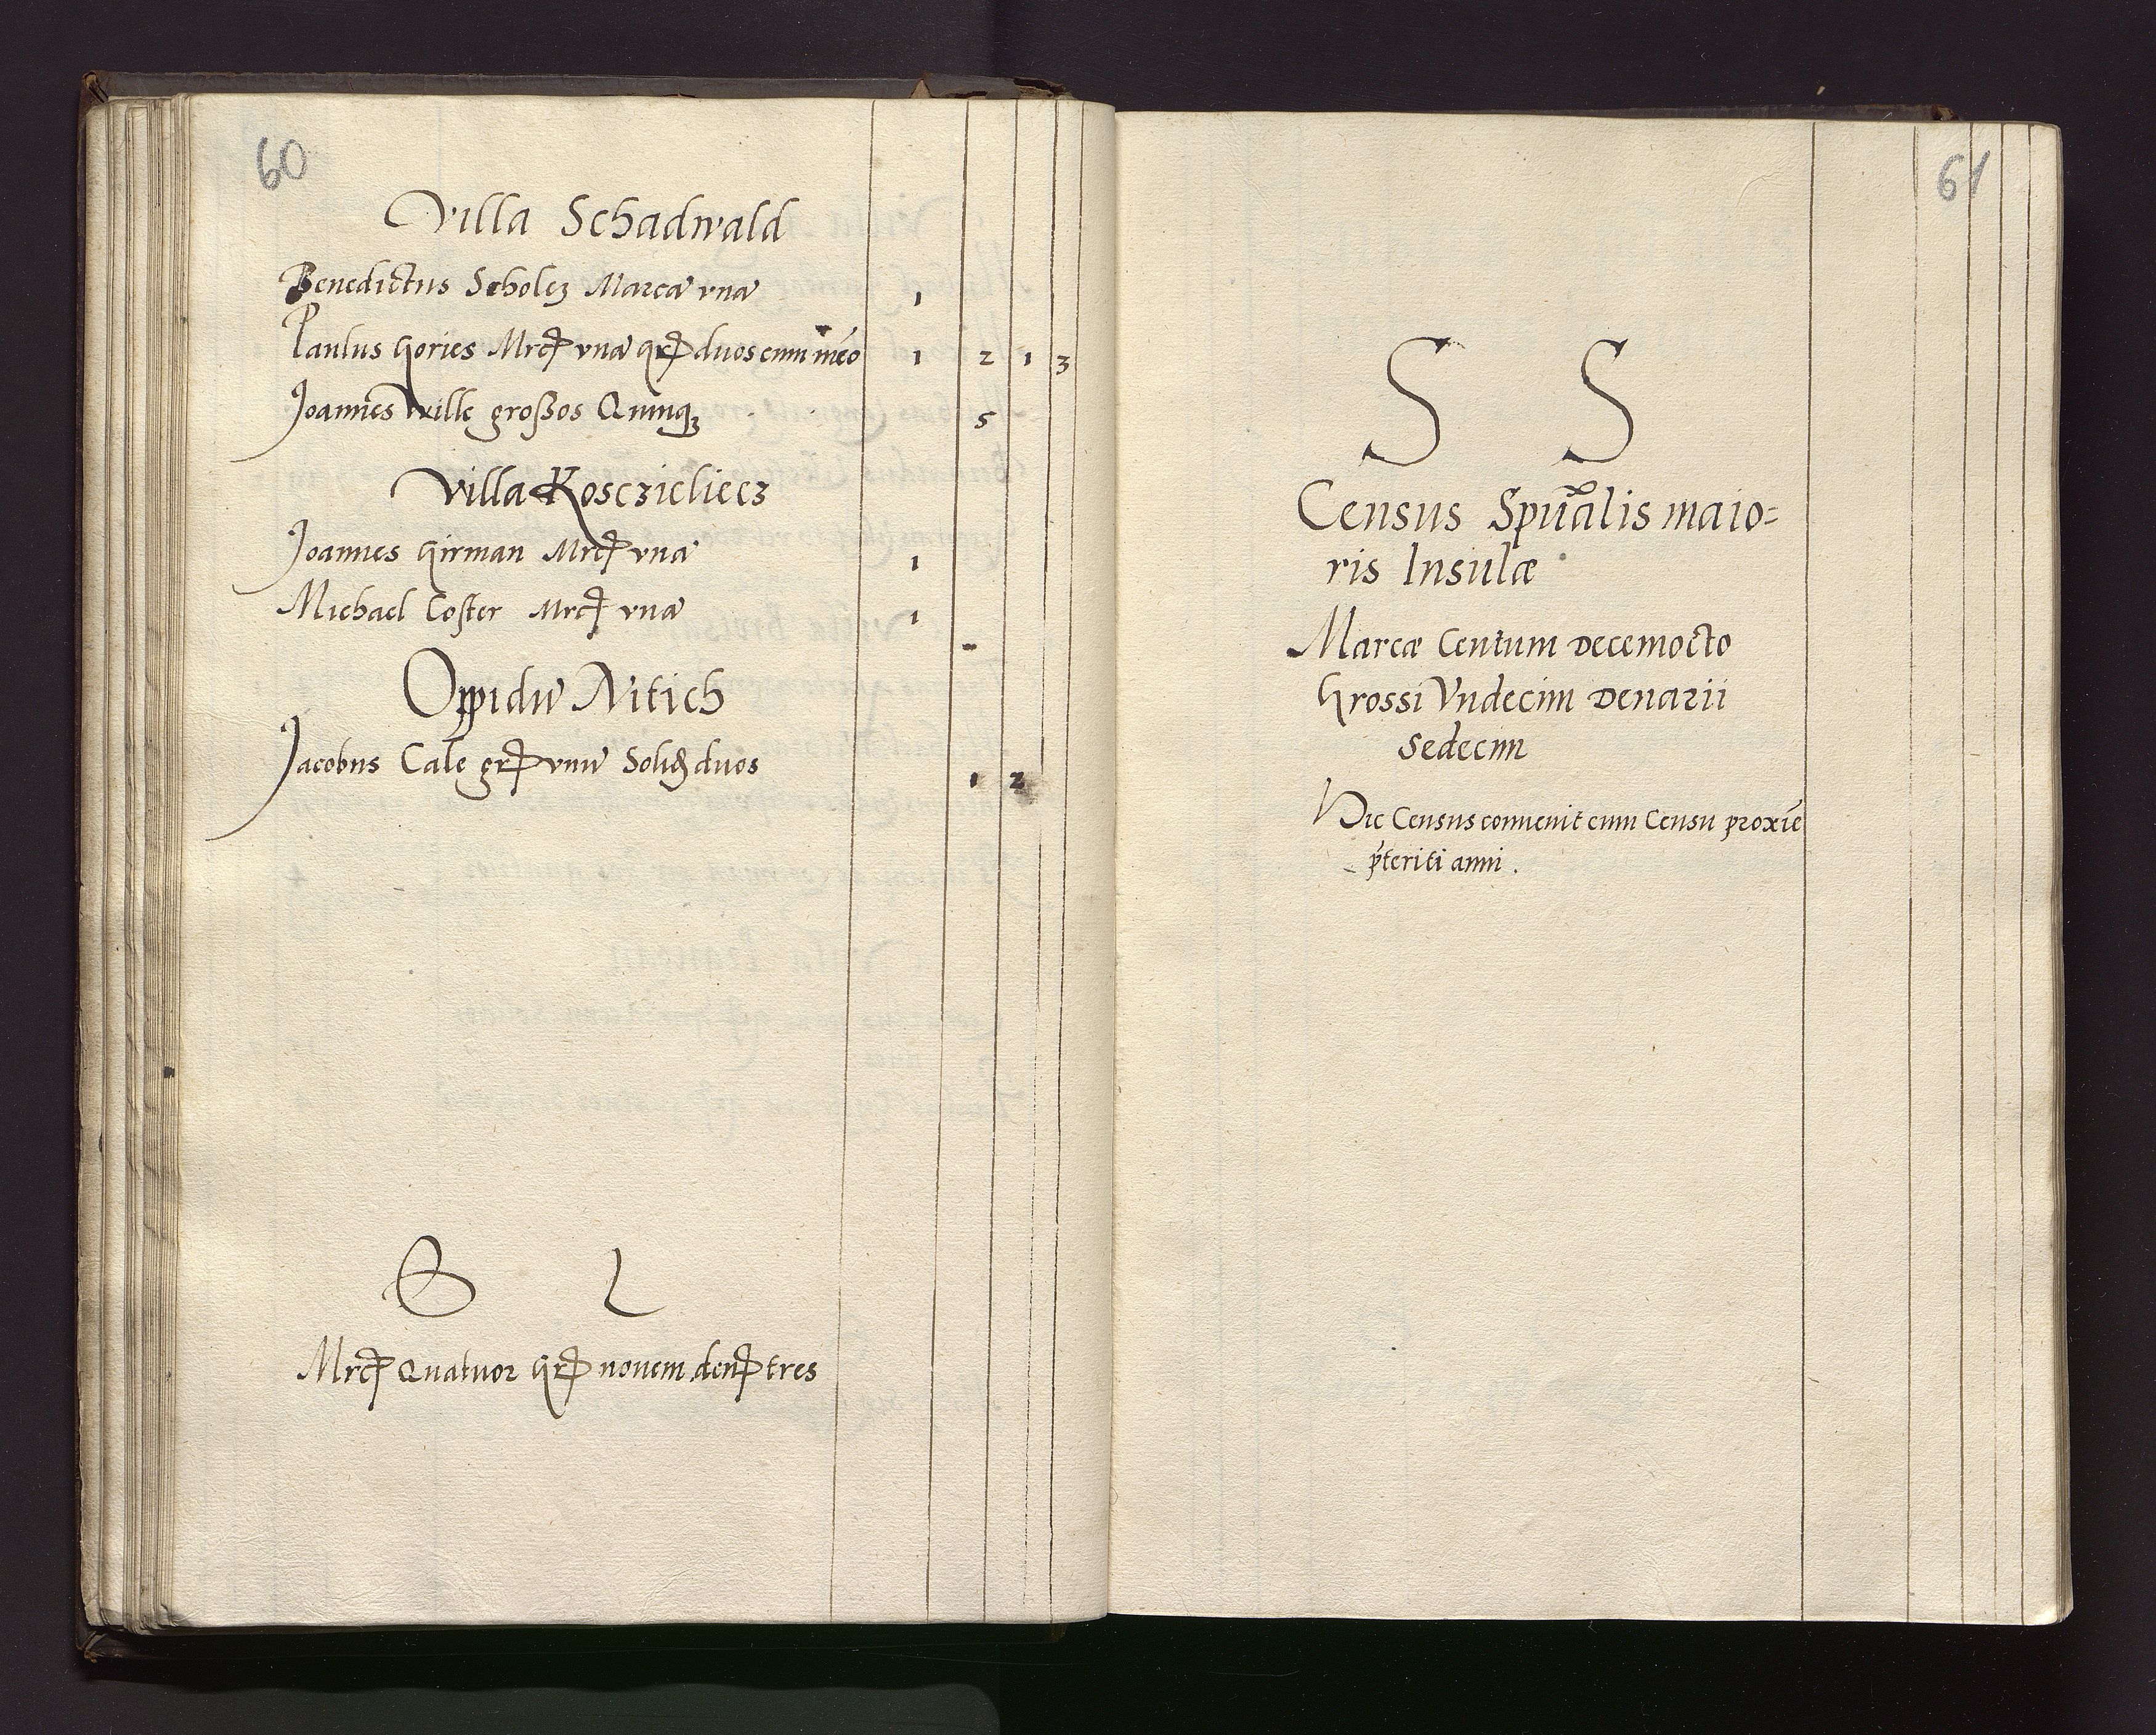 60
Villa Schadwald
Benedictus Scholcz Marcā vnā 1
Paulus Gories Mrcꝭ vnā grꝭ duos cum 1 2 1 3
Joannes Wille großos Quinqꝫ 5
Villa Kosczieliecz
Joannes Girman Mrcꝭ vnā 1
Michael Coster Mrcꝭ vnā 1
Oppidū Nitich
Jacobus Cale grꝭ vnū Solidꝭ duos 1 2
S L
Mrcꝭ Quatuor Grꝭ nouem denꝭ tres
61
S S
Census Spūalis maio=
ris Insulæ
Marcæ Centum Decemocto
Grossi Vndecim Denarii
Sedecim
Hic Census conuenit cum Censu proxīe
p̄teriti anni .